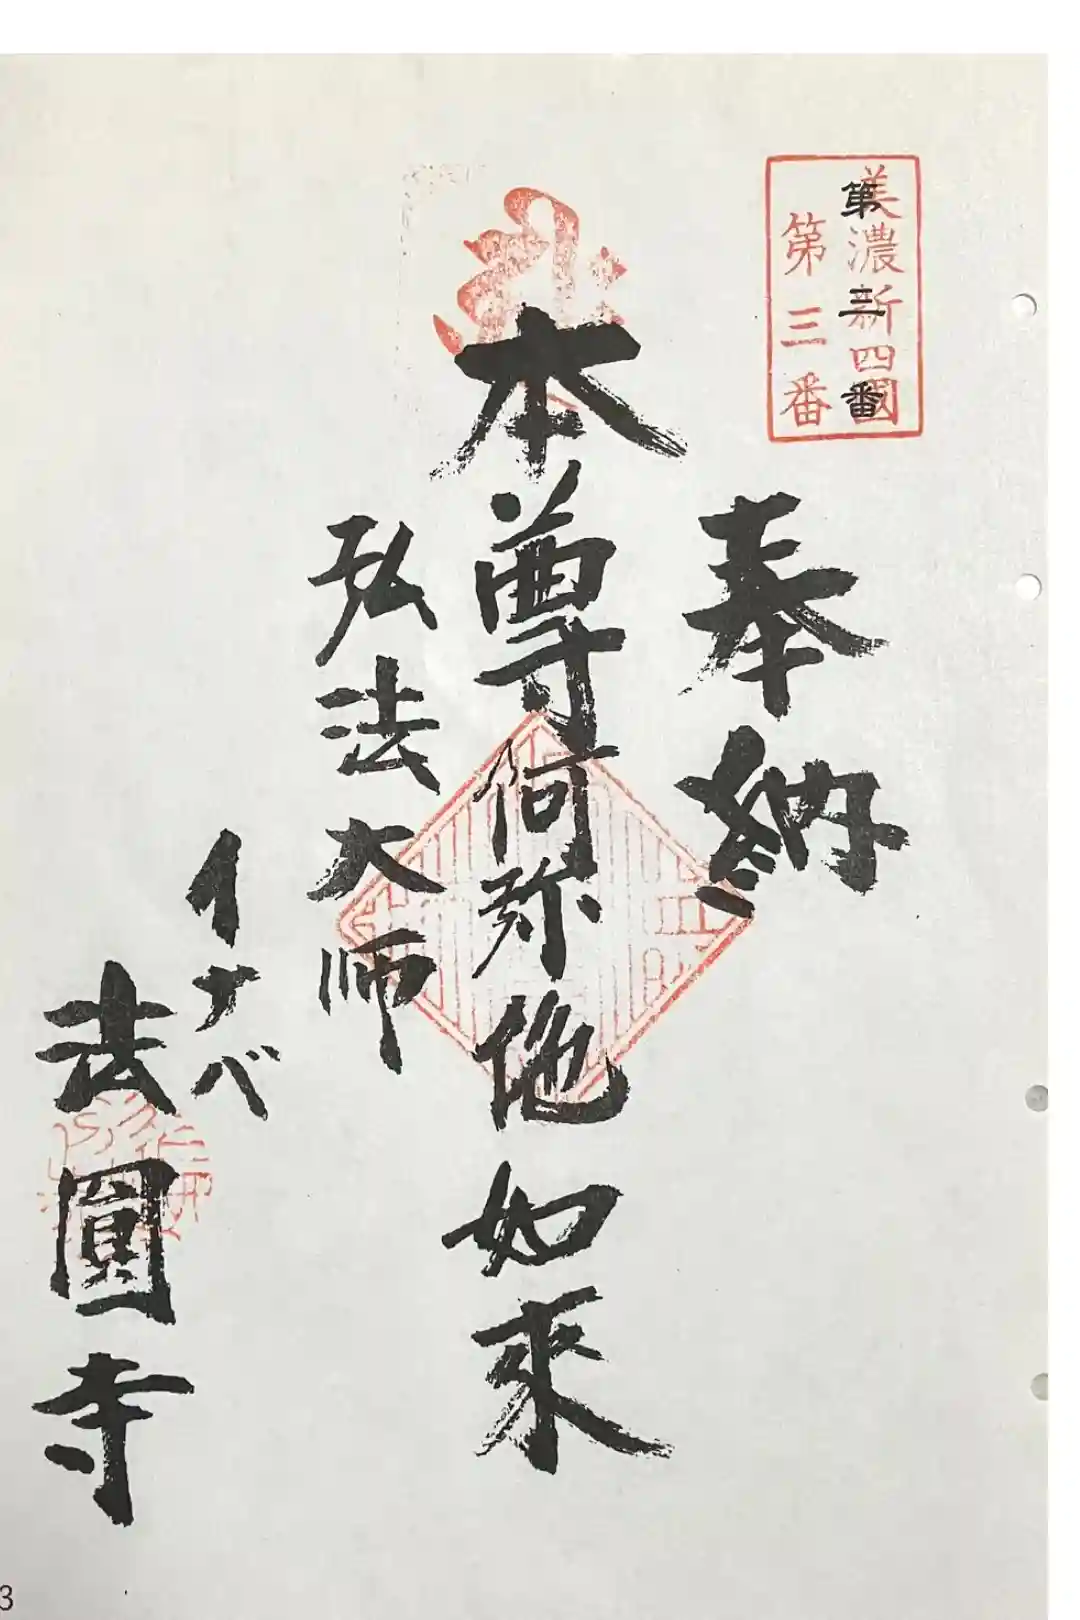 美濃新四國
第三番
第三番
奉納
本尊阿弥他如來
弘法大师
イナバ
法圓寺
3